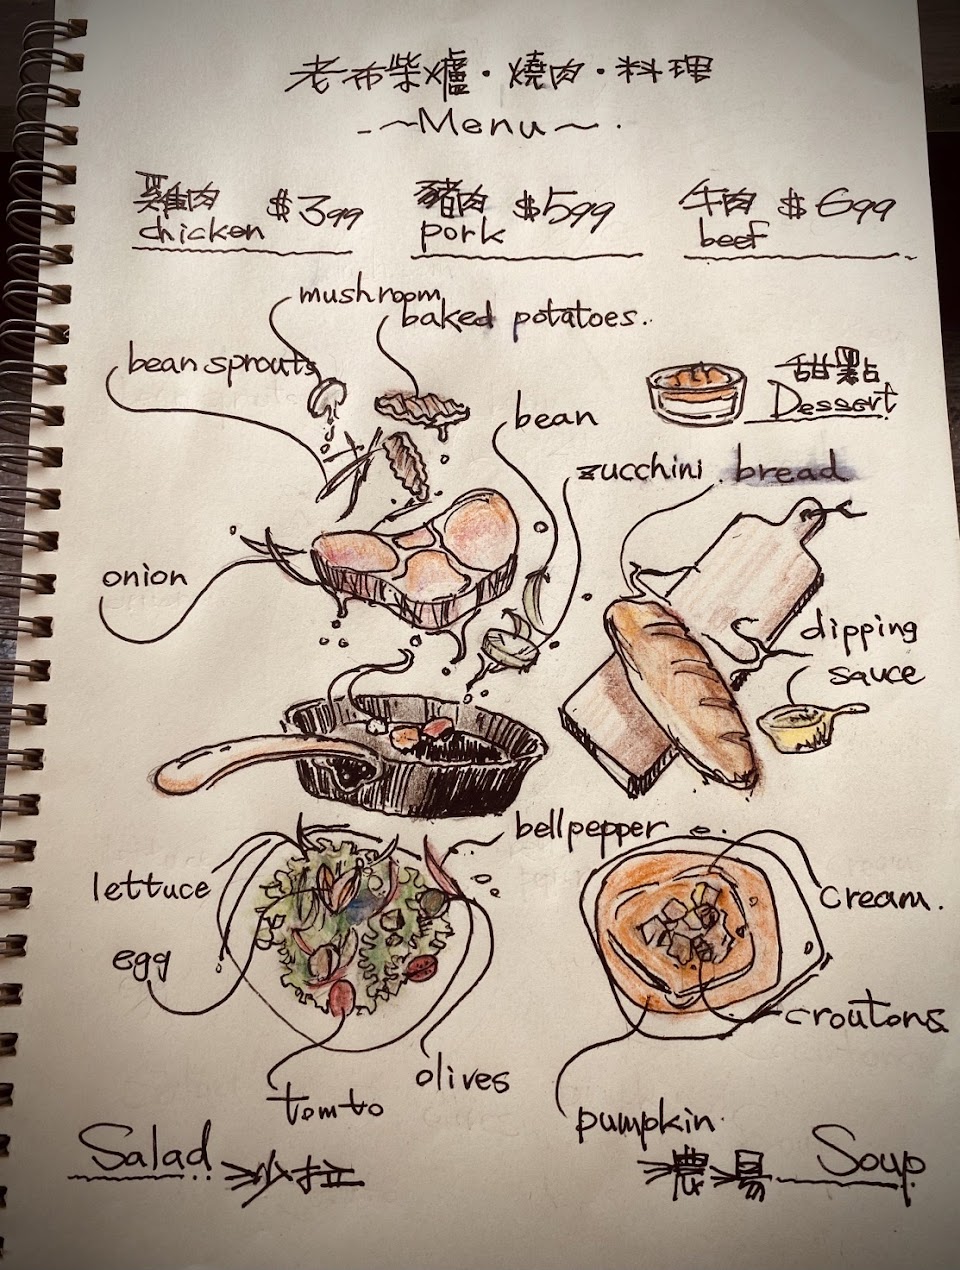 老布柴爐·燒肉·料理
~Menu~
雞肉 $399
chicken
豬肉 $599
pork
牛肉 $699
beef
mushroom
baked potatoes.
bean sprouts
甜點
Dessert
bean
zucchini
bread
onion
dipping
sauce
bellpepper
lettuce
cream.
egg
croutons
olives
tomto
pumpkin
Salad 沙拉
濃湯 Soup